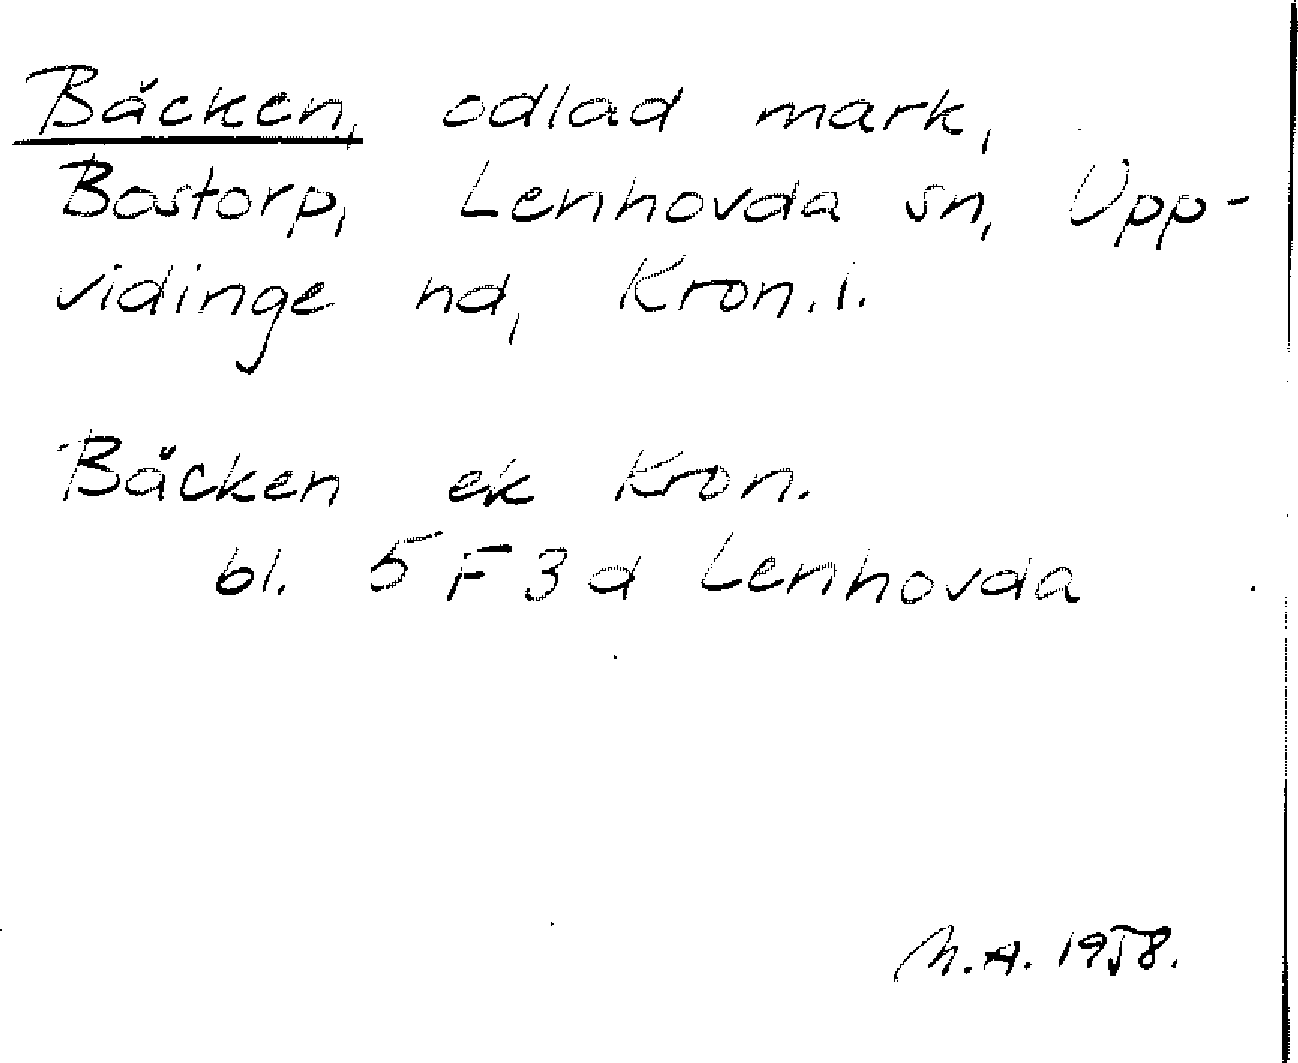 Bäcken, odlad mark,
Bostorp, Lenhovda sn, Upp-
vidinge hd, Kron. l.
Bäcken ek Kron.
bl. 5 F 3 d Lenhovda
M.A. 1958.